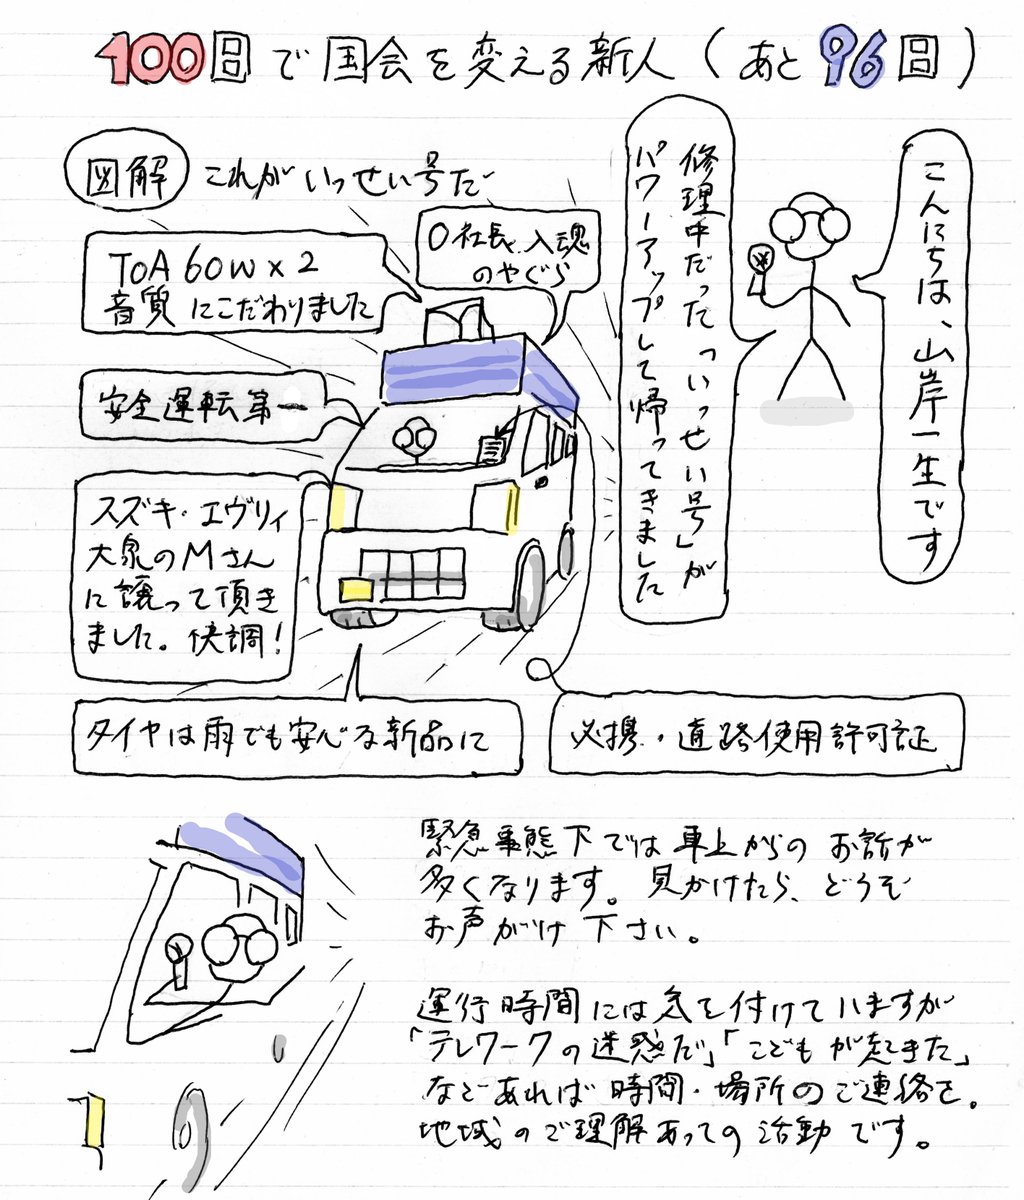 100日で国会を変える新人(あと96日)
図解 これがいっせい号だ
こんにちは、山岸一生です
修理中だった「いっせい号」が
パワーアップして帰ってきました
O社長、入魂
のやぐら
TOA 60W×2
音質にこだわりました
安全運転第一
スズキ・エヴリィ
大泉のMさん
に譲って頂き
ました。快調!
タイヤは雨でも安心な新品に
必携・道路使用許可証
緊急事態下では車上からのお話が
多くなります。見かけたら、どうぞ
お声がけ下さい。
運行時間には気を付けていますが
「テレワークの迷惑だ」「こどもが起きた」
などあれば時間・場所のご連絡を。
地域のご理解あっての活動です。